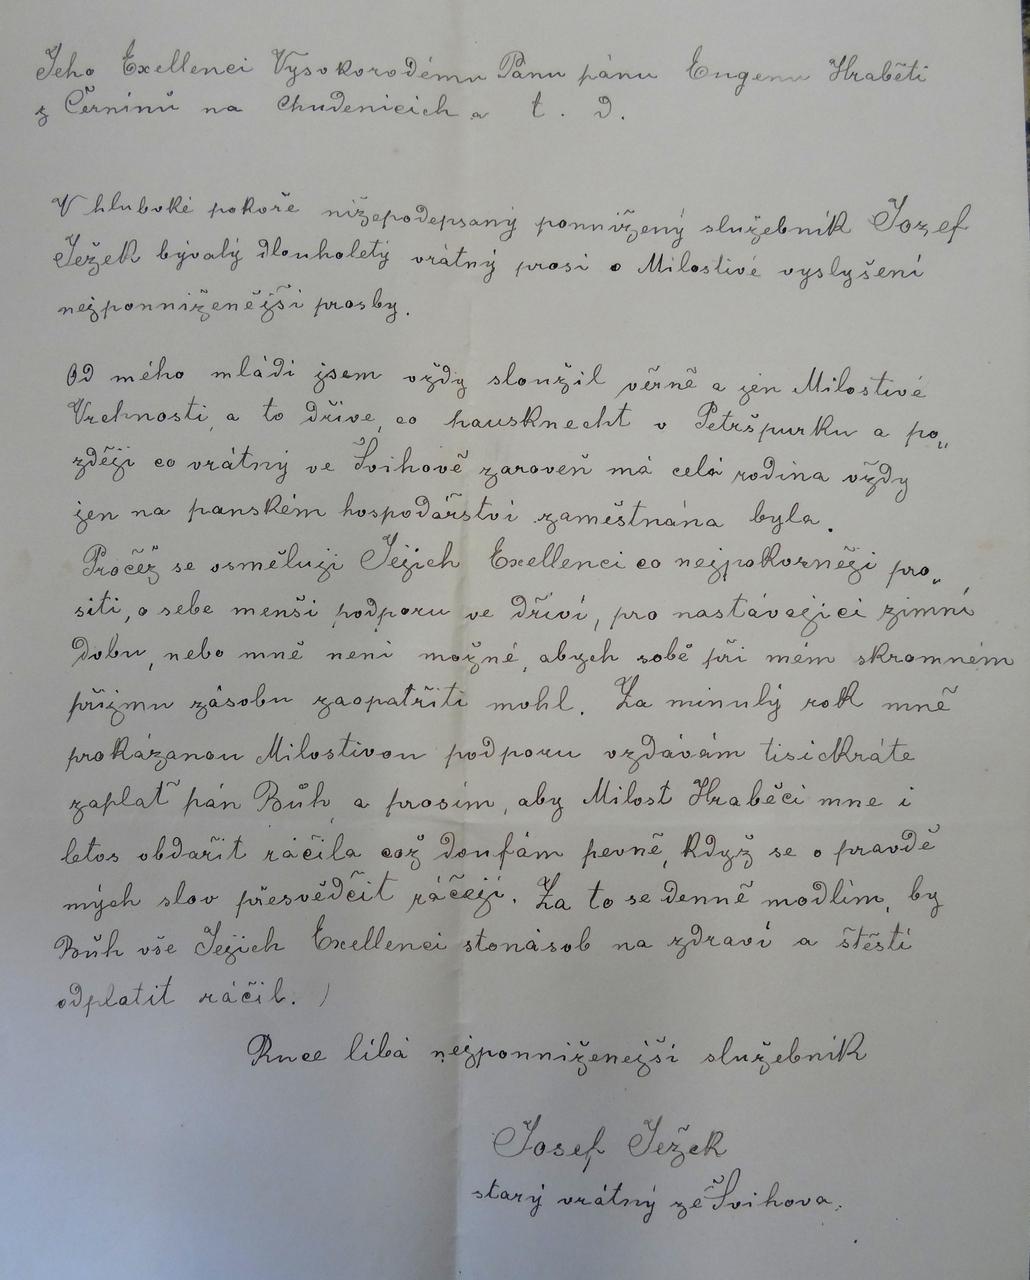 Jeho Exellenci Vysokorodému Pánu pánu Eugenu Hraběti
z Černínů na Chudenicích a t. d.
V hluboké pokoře nížepodepsaný ponnížený služebník Jozef
Ježek bývalý dlouholetý vrátný prosí o Milostivé vyslyšení
nejponníženější prosby.
Od mého mládí jsem vždy sloužil věrně a jen Milostivé
Vrchnosti, a to dříve, co hausknecht v Petršpurku a po„
zději co vrátný ve Švihově zároveň má celá rodina vždy
jen na panském hospodářství zaměstnána byla.
Pročež se osměluji Jejich Exellenci co nejpokorněji pro„
siti, o sebe menší podporu ve dříví, pro nastávající zimní
dobu, nebo mně není možné, abych sobě při mém skromném
příjmu zásobu zaopatřiti mohl. Za minulý rok mně
prokázanou Milostivou podporu vzdávám tisíckráte
zaplať pán Bůh, a prosím, aby Milost Hraběcí mne i
letos obdařit ráčila což doufám pevně, když se o pravdě
mých slov přesvědčit ráčejí. Za to se denně modlím, by
Bůh vše Jejich Exellenci stonásob na zdraví a štěstí
odplatit ráčil.
Ruce líbá nejponníženejší služebník
Josef Ježek
starý vrátný ze Švihova.